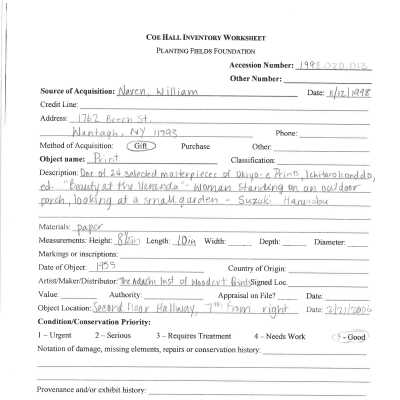 COE HALL INVENTORY WORKSHEET
PLANTING FIELDS FOUNDATION
Accession Number: 1998.020.013
Other Number:
Source of Acquisition: Naren, William Date: 11/12/1998
Credit Line:
Address: 1762 Beech St.
Wantagh, NY 11793 Phone:
Method of Acquisition: Gift Purchase Other:
Object name: Print Classification:
Description: One of 24 selected masterpieces of Ukiyo-e Prints, Ichitaro Kondo,
ed. "Beauty at the Veranda" - woman standing on an outdoor
porch, looking at a small garden - Suzuki Harunobu
Materials: paper
Measurements: Height: 8½in Length: 10in Width: Depth: Diameter:
Markings or inscriptions:
Date of Object: 1955 Country of Origin:
Artist/Maker/Distributor: The Adachi Inst of Woodcut Prints Signed Loc.
Value: Authority: Appraisal on File? Date:
Object Location: Second Floor Hallway, 7th from right Date: 2/21/2006
Condition/Conservation Priority:
1 – Urgent 2 – Serious 3 – Requires Treatment 4 – Needs Work 5 - Good
Notation of damage, missing elements, repairs or conservation history:
Provenance and/or exhibit history: